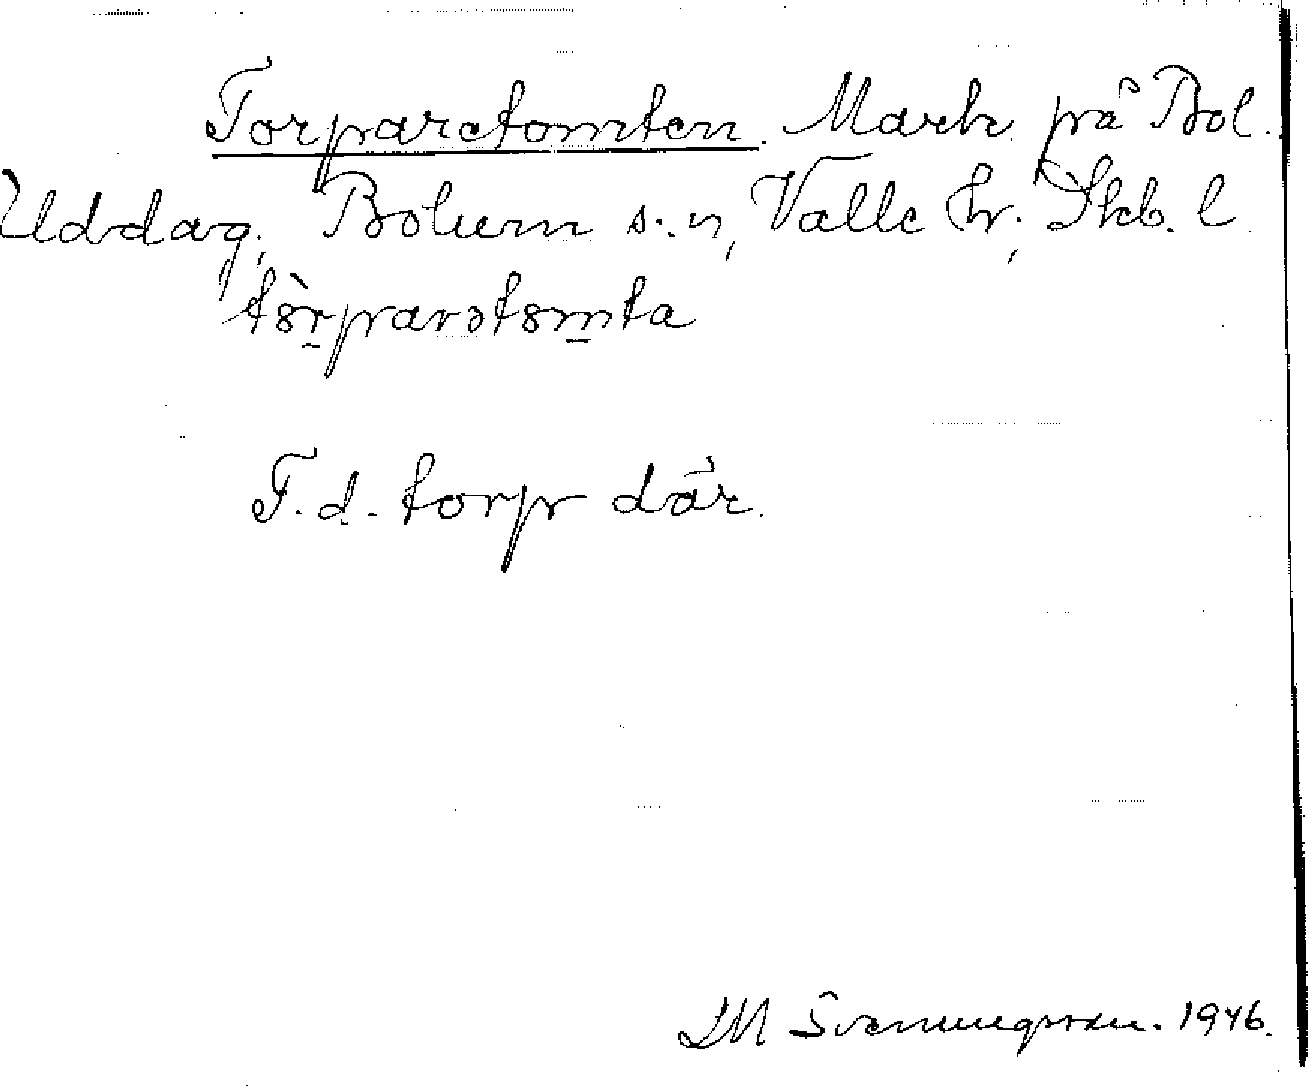 Torparetomten. Mark på Bol.
Uddag, Bolum s:n, Valle hr; Skb. l
tòrparətomta
F.d. torp där.
IM Svenningsson. 1946.